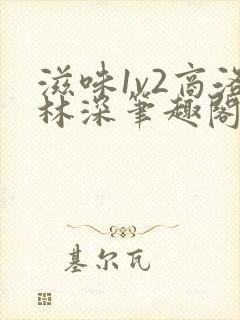 滋味1v2高洛
林深笔趣阁
基尔瓦